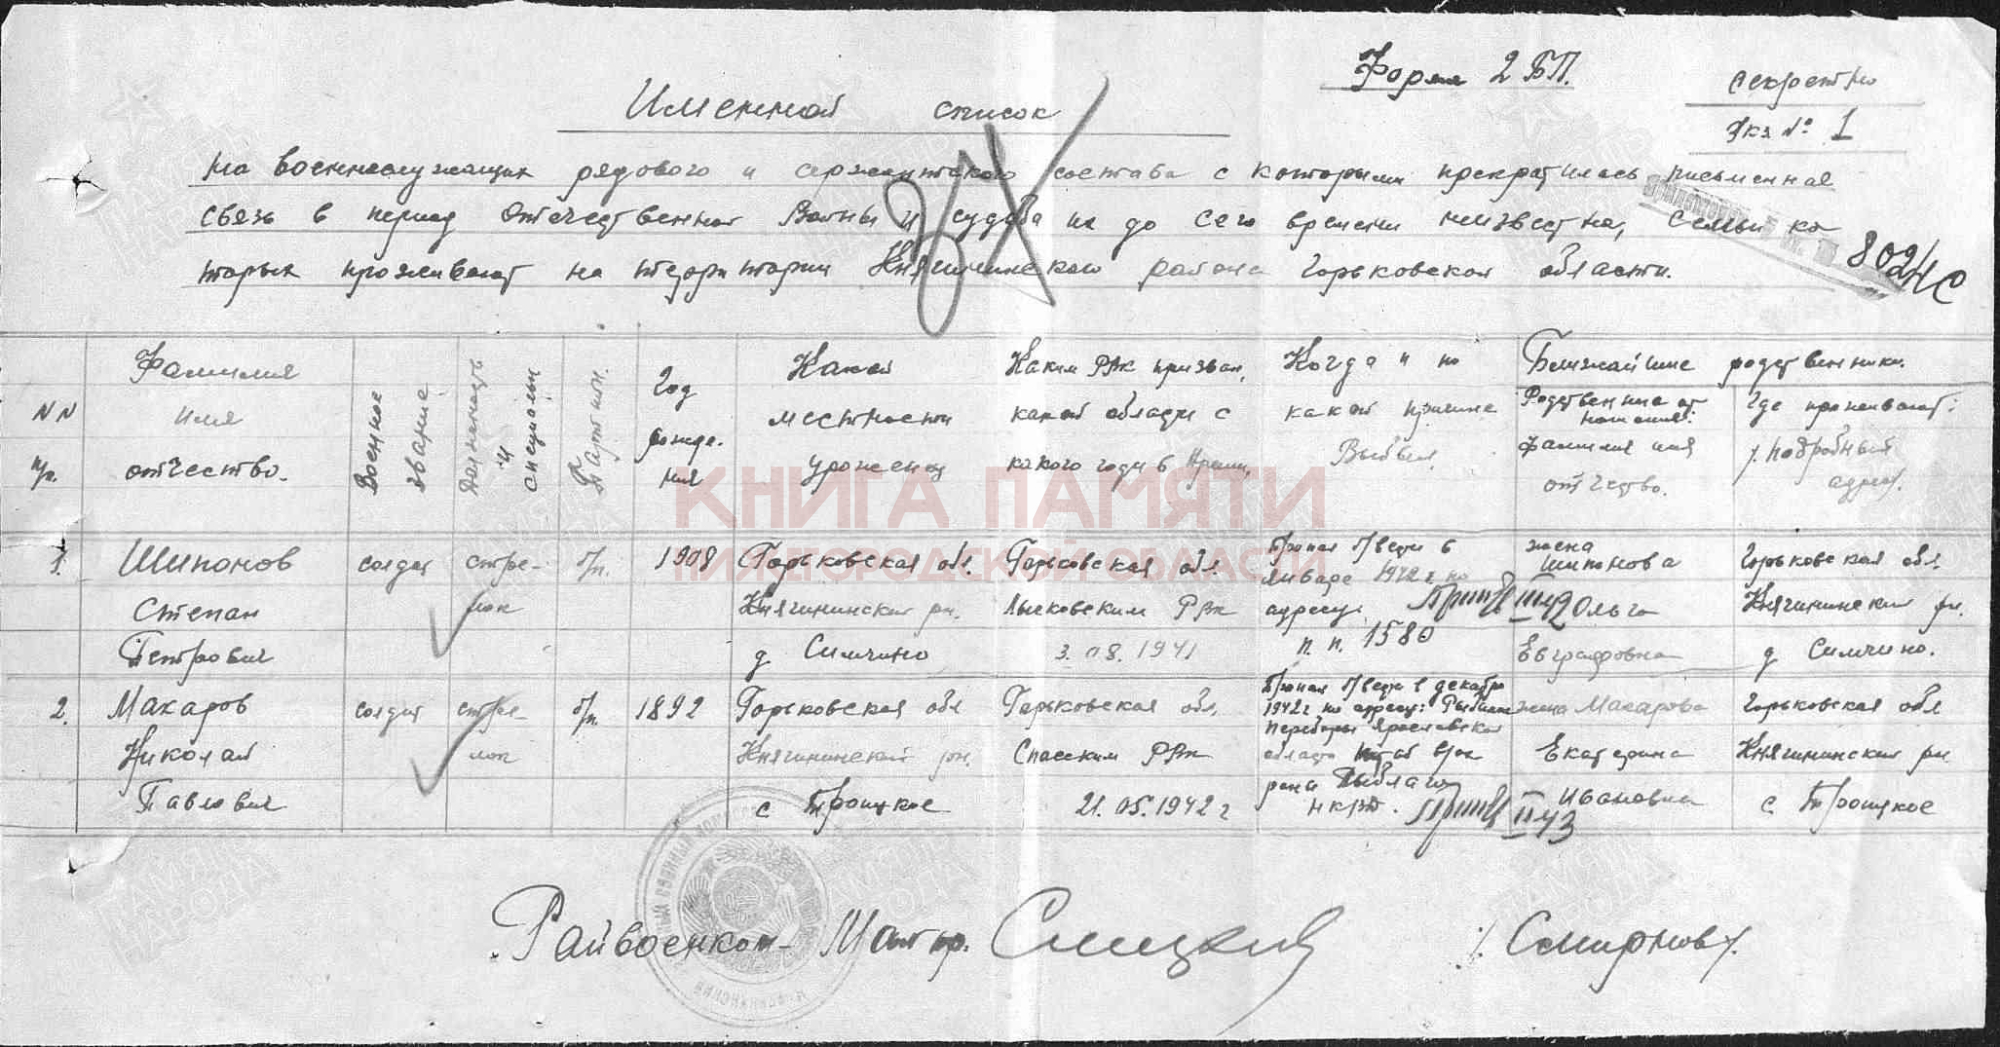 Форма 2 БП.
Секретно
Экз № 1
Именной список
на военнослужащих рядового и сержантского состава с которыми прекратилась письменная
связь в период Отечественной Войны и судьба их до сего времени неизвестна, семьи ко
торых проживают на территории Княгининского района Горьковской области.
802/с
NN пр.
Фамилия имя отчество.
Военное звание
Должность и специальн
Партийн.
Год рождения
Какой местности уроженец
Каким РВК призван, какой области с какого года в Армии,
Когда и по какой причине Выбыл.
Ближайшие родственники.
Родственные отношения: фамилия имя отчество.
Где проживают: /подробный адрес/.
1. Шипонов солдат стре- б/п. 1908 Горьковская обл. Горьковская обл. Пропал б/вести в жена Шипонова Горьковская обл
январе 1942 г. по
Степан лок Княгининский рн. Лысковским РВК адресу: Ольга Княгининский рн.
Петрович д Симчино 3.08.1941 п. п. 1580 Евграфовна д Симчино.
2. Макаров солдат стрел- б/п 1892 Горьковская обл Горьковская обл. Пропал б/вести в декабре жена Макарова Горьковская обл
1942 г по адресу:
Николай лок Княгининский рн. Спасским РВК области Екатерина Княгининский рн
Павлович с Троицкое 21.05.1942 г НКВД. Ивановна с Троицкое
Райвоенком- Майор.
/Смирнов/.
КНИГА ПАМЯТИ
НИЖЕГОРОДСКОЙ ОБЛАСТИ
ПАМЯТЬ НАРОДА